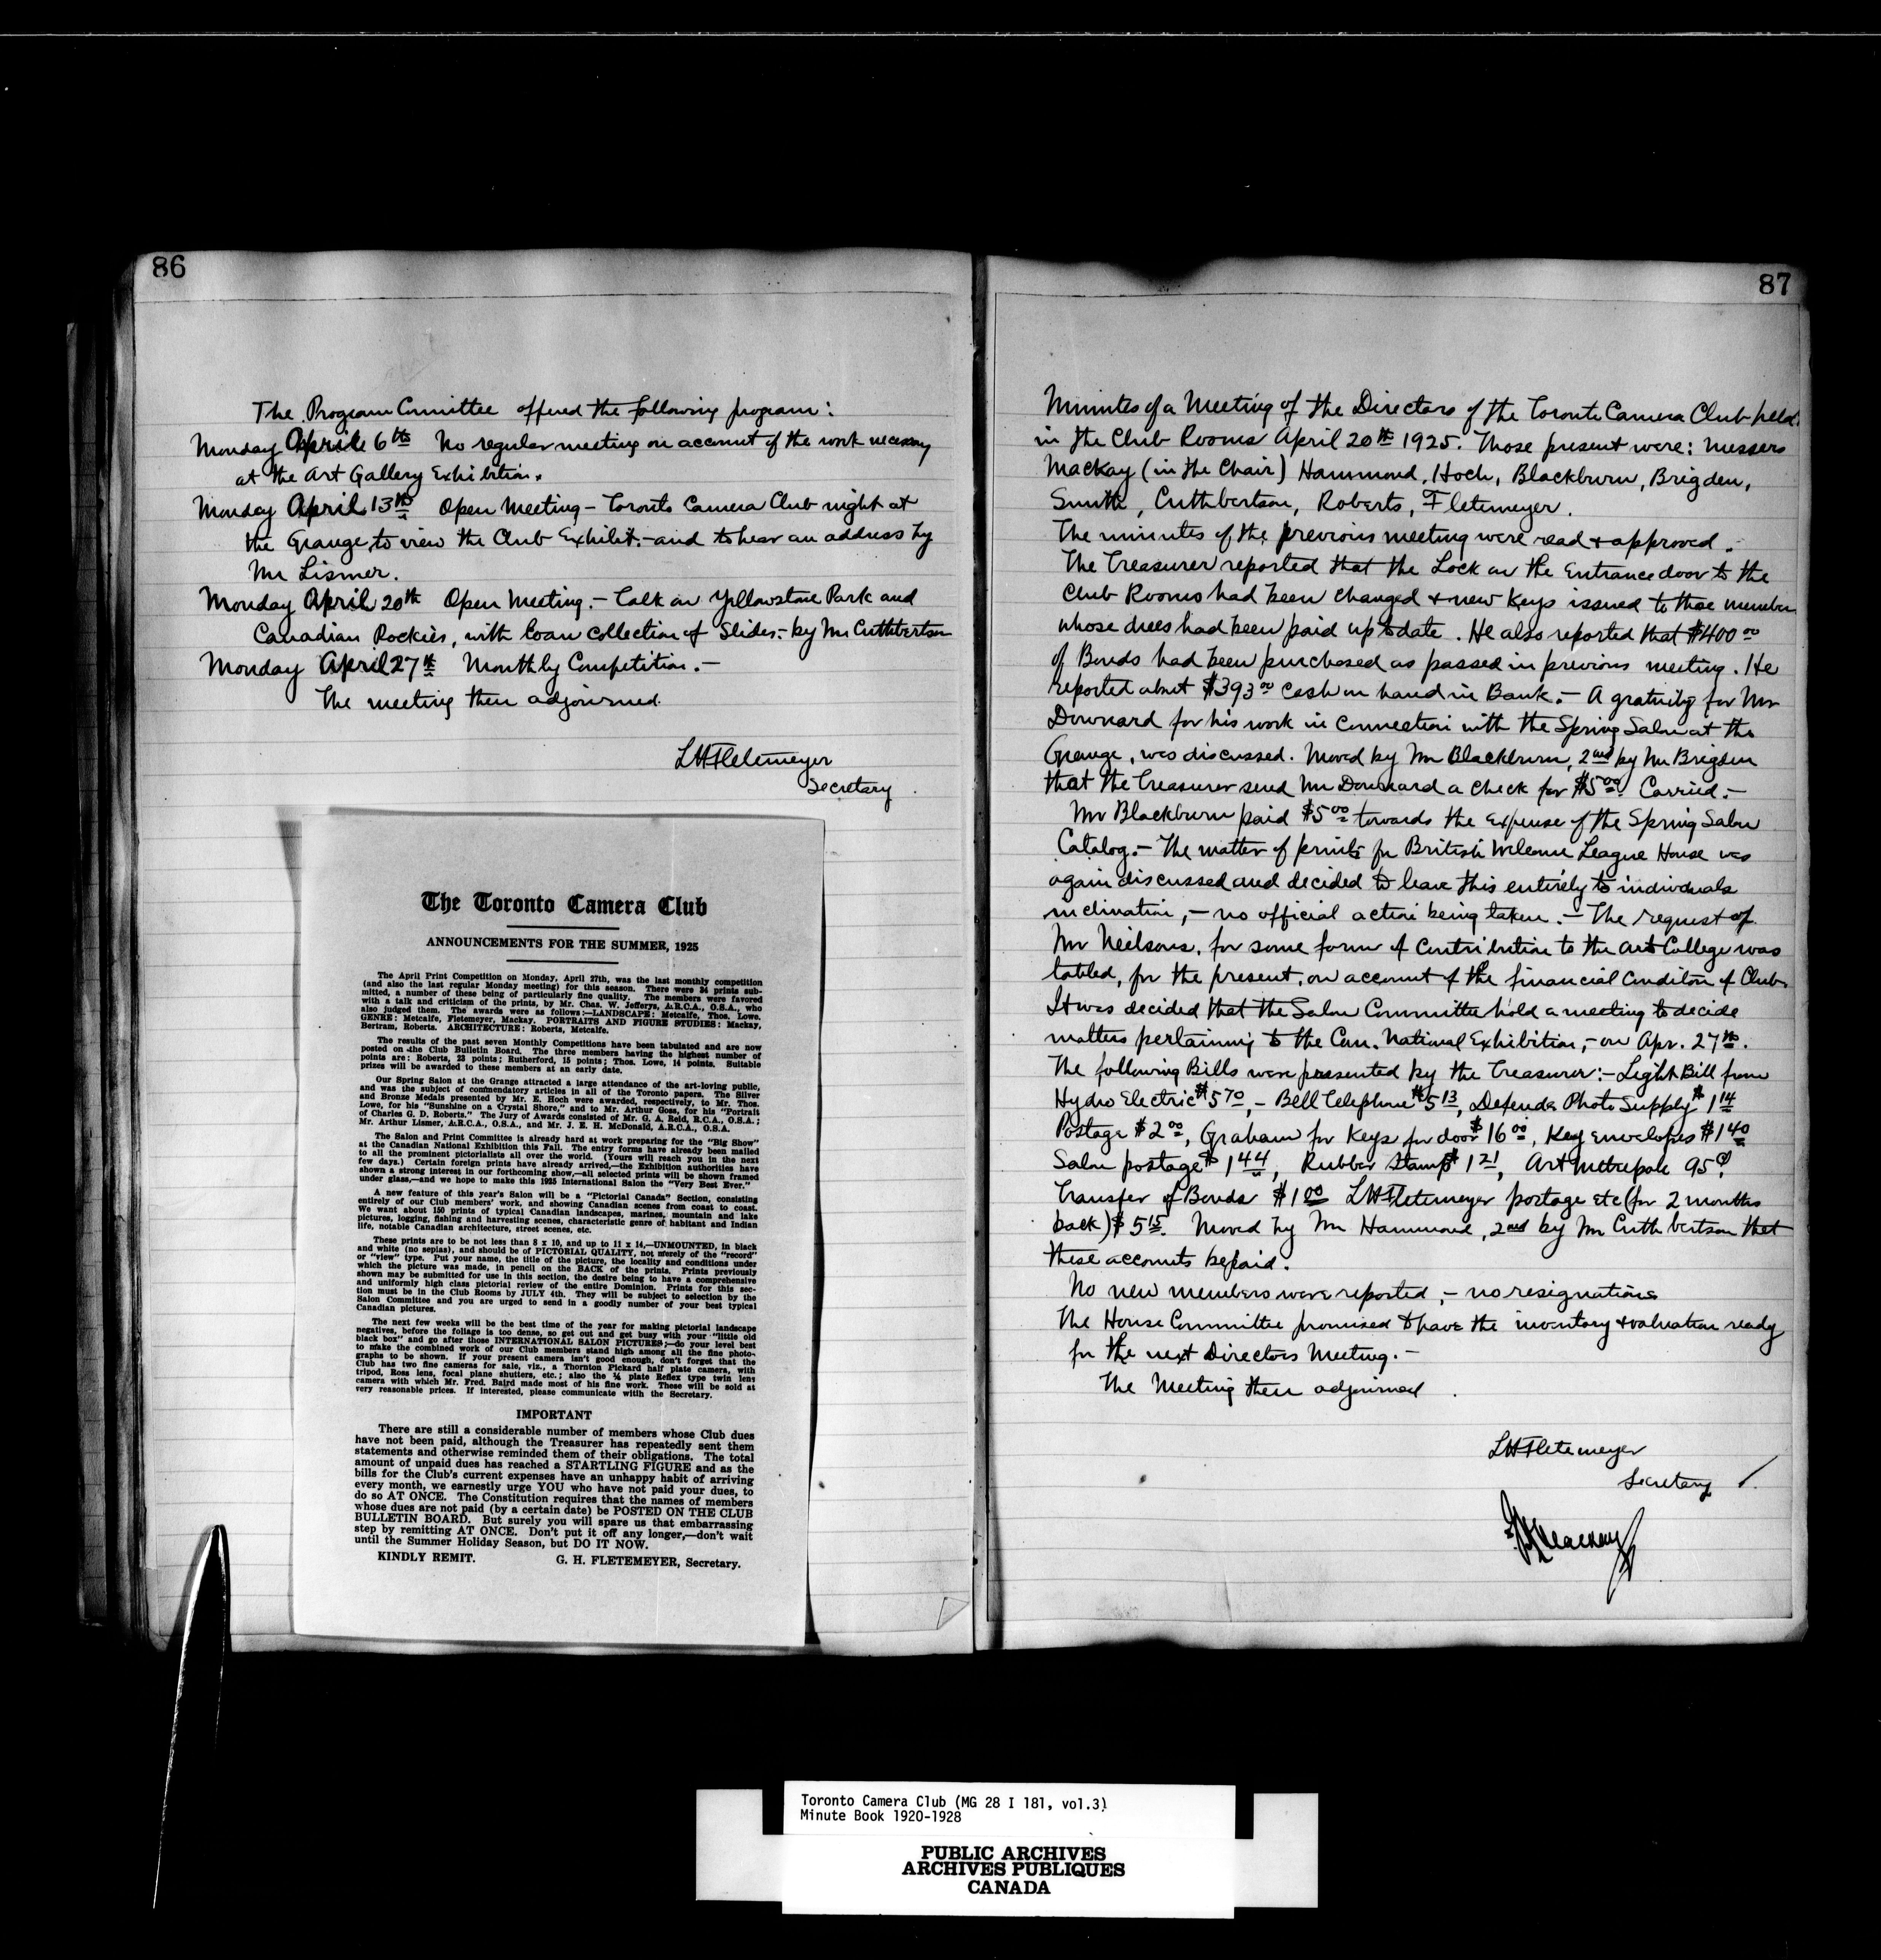 86
The Program Committee offered the following program:
Monday April 6th No regular meeting on account of the work necessary
at the Art Gallery Exhibition.
Monday April 13th Open Meeting – Toronto Camera Club night at
the Grange, to view the Club Exhibit. – and to hear an address by
Mr Lismer.
Monday April 20th Open Meeting. – Talk on Yellowstone Park and
Canadian Rockies, with loan collection of Slides. – by Mr Cuthbertson
Monday April 27th Monthly Competition. –
The meeting then adjourned.
LHFletemeyer
Secretary
The Toronto Camera Club
ANNOUNCEMENTS FOR THE SUMMER, 1925
The April Print Competition on Monday, April 27th, was the last monthly competition
(and also the last regular Monday meeting) for this season. There were 34 prints sub-
mitted, a number of these being of particularly fine quality. The members were favored
with a talk and criticism of the prints, by Mr. Chas. W. Jefferys, A.R.C.A., O.S.A., who
also judged them. The awards were as follows:—LANDSCAPE: Metcalfe, Thos. Lowe.
GENRE: Metcalfe, Fletemeyer, Mackay. PORTRAITS AND FIGURE STUDIES: Mackay,
Bertram, Roberts. ARCHITECTURE: Roberts, Metcalfe.
The results of the past seven Monthly Competitions have been tabulated and are now
posted on the Club Bulletin Board. The three members having the highest number of
points are: Roberts, 23 points; Rutherford, 15 points; Thos. Lowe, 14 points. Suitable
prizes will be awarded to these members at an early date.
Our Spring Salon at the Grange attracted a large attendance of the art-loving public,
and was the subject of commendatory articles in all of the Toronto papers. The Silver
and Bronze Medals presented by Mr. E. Hoch were awarded, respectively, to Mr. Thos.
Lowe, for his "Sunshine on a Crystal Shore," and to Mr. Arthur Goss, for his "Portrait
of Charles G. D. Roberts." The Jury of Awards consisted of Mr. G. A. Reid, R.C.A., O.S.A.;
Mr. Arthur Lismer, A.R.C.A., O.S.A., and Mr. J. E. H. McDonald, A.R.C.A., O.S.A.
The Salon and Print Committee is already hard at work preparing for the "Big Show"
at the Canadian National Exhibition this Fall. The entry forms have already been mailed
to all the prominent pictorialists all over the world. (Yours will reach you in the next
few days.) Certain foreign prints have already arrived,—the Exhibition authorities have
shown a strong interest in our forthcoming show,—all selected prints will be shown framed
under glass,—and we hope to make this 1925 International Salon the "Very Best Ever."
A new feature of this year's Salon will be a "Pictorial Canada" Section, consisting
entirely of our Club members' work, and showing Canadian scenes from coast to coast.
We want about 150 prints of typical Canadian landscapes, marines, mountain and lake
pictures, logging, fishing and harvesting scenes, characteristic genre of habitant and Indian
life, notable Canadian architecture, street scenes, etc.
These prints are to be not less than 8 x 10, and up to 11 x 14,—UNMOUNTED, in black
and white (no sepias), and should be of PICTORIAL QUALITY, not merely of the "record"
or "view" type. Put your name, the title of the picture, the locality and conditions under
which the picture was made, in pencil on the BACK of the prints. Prints previously
shown may be submitted for use in this section, the desire being to have a comprehensive
and uniformly high class pictorial review of the entire Dominion. Prints for this sec-
tion must be in the Club Rooms by JULY 4th. They will be subject to selection by the
Salon Committee and you are urged to send in a goodly number of your best typical
Canadian pictures.
The next few weeks will be the best time of the year for making pictorial landscape
negatives, before the foliage is too dense, so get out and get busy with your "little old
black box" and go after those INTERNATIONAL SALON PICTURES;—do your level best
to make the combined work of our Club members stand high among all the fine photo-
graphs to be shown. If your present camera isn't good enough, don't forget that the
Club has two fine cameras for sale, viz., a Thornton Pickard half plate camera, with
tripod, Ross lens, focal plane shutters, etc.; also the ¼ plate Reflex type twin lens
camera with which Mr. Fred. Baird made most of his fine work. These will be sold at
very reasonable prices. If interested, please communicate with the Secretary.
IMPORTANT
There are still a considerable number of members whose Club dues
have not been paid, although the Treasurer has repeatedly sent them
statements and otherwise reminded them of their obligations. The total
amount of unpaid dues has reached a STARTLING FIGURE and as the
bills for the Club's current expenses have an unhappy habit of arriving
every month, we earnestly urge YOU who have not paid your dues, to
do so AT ONCE. The Constitution requires that the names of members
whose dues are not paid (by a certain date) be POSTED ON THE CLUB
BULLETIN BOARD. But surely you will spare us that embarrassing
step by remitting AT ONCE. Don't put it off any longer,—don't wait
until the Summer Holiday Season, but DO IT NOW.
KINDLY REMIT. G. H. FLETEMEYER, Secretary.
87
Minutes of a Meeting of the Directors of the Toronto Camera Club held
in the Club Rooms April 20th 1925. Those present were: Messers
Mackay (in the Chair) Hammond, Hoch, Blackburn, Brigden,
Smith, Cuthbertson, Roberts, Fletemeyer.
The minutes of the previous meeting were read + approved.
The Treasurer reported that the Lock on the Entrance door to the
Club Rooms had been changed + new Keys issued to those members
whose dues had been paid up to date. He also reported that $400 00
of Bonds had been purchased as passed in previous meeting. He
reported about $393 00 cash on hand in Bank. – A gratuity for Mr
Downard for his work in connection with the Spring Salon at the
Grange, was discussed. Moved by Mr Blackburn, 2nd by Mr Brigden
that the Treasurer send Mr Downard a check for $5 00. Carried. –
Mr Blackburn paid $5 00 towards the expense of the Spring Salon
Catalog. – The matter of prints for British Welcome League House was
again discussed and decided to leave this entirely to individuals
inclination, – no official action being taken. – The request of
Mr Neilsons, for some form of contribution to the Art College was
tabled, for the present, on account of the financial Conditon of Club.
It was decided that the Salon Committee hold a meeting to decide
matters pertaining to the Can. National Exhibition, – on Apr. 27th.
The following Bills were presented by the Treasurer: – Light Bill from
Hydro Electric $5 70, – Bell Telephone $5 13, Defender Photo Supply $1 14
Postage $2 00, Graham for Keys for door $16 00, Key envelopes $1 40
Salon postage $1 44, Rubber Stamp $1 21, Art Metropole 95¢
Transfer of Bonds $1 00 LHFletemeyer postage etc (for 2 months
back) $5 15. Moved by Mr Hammond, 2nd by Mr Cuthbertson that
these accounts be paid.
No new members were reported, – no resignations
The House Committee promised to have the inventory + valuation ready
for the next Directors Meeting. –
The Meeting then adjourned
LHFletemeyer
Secretary
Mackay
Toronto Camera Club (MG 28 I 181, vol.3)
Minute Book 1920-1928
PUBLIC ARCHIVES
ARCHIVES PUBLIQUES
CANADA